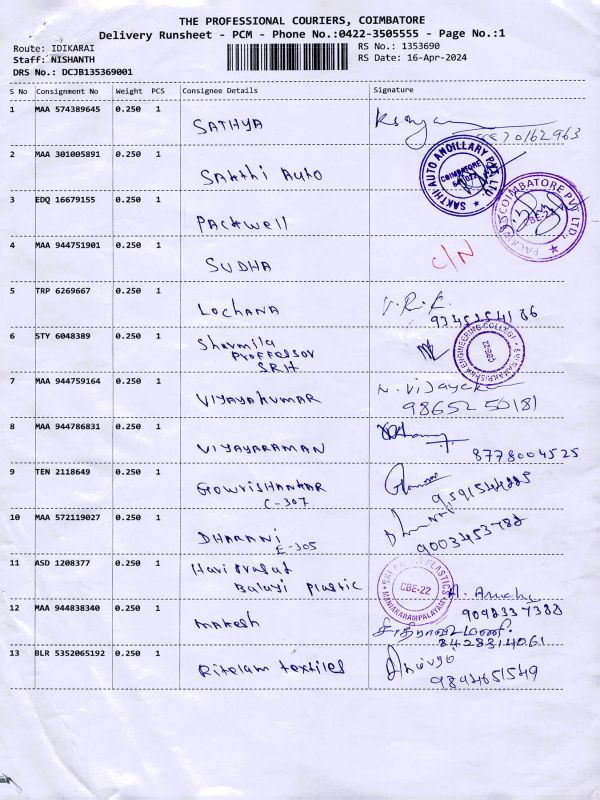 THE PROFESSIONAL COURIERS, COIMBATORE
Delivery Runsheet - PCM - Phone No.:0422-3505555 - Page No.:1
Route: IDIKARAI
RS No.: 1353690
Staff: NISHANTH
RS Date: 16-Apr-2024
DRS No.: DCJB135369001
S No Consignment No Weight PCS Consignee Details Signature
1 MAA 574389645 0.250 1
SATHYA
2 MAA 301005891 0.250 1
SAKTHI AUTO
SAKTHI AUTO ANCILLARY PVT LTD
COIMBATORE
3 EDQ 16679155 0.250 1
PACKWELL
COIMBATORE PVT LTD.
CBE-22
4 MAA 944751901 0.250 1
SUDHA C/N
5 TRP 6269667 0.250 1
LOCHANA V.R.K.
6 STY 6048389 0.250 1
Sharmila
PROFFESSOR
SRIH
ENGINEERING COLLEGE
7 MAA 944759164 0.250 1
VIJAYAKUMAR
98652 50181
8 MAA 944786831 0.250 1
VIJAYARAMAN
8778004525
9 TEN 2118649 0.250 1
GOWRISHANKAR
C-307
10 MAA 572119027 0.250 1
DHARANI
E-305
9003453788
11 ASD 1208377 0.250 1
Hari prasat
Balaji plastic
PLASTICS
MANIAKARAMPALAYAM
CBE-22
12 MAA 944838340 0.250 1
MAKESH
8428314061
13 BLR 5352065192 0.250 1
Ritelam textiles
9894651549